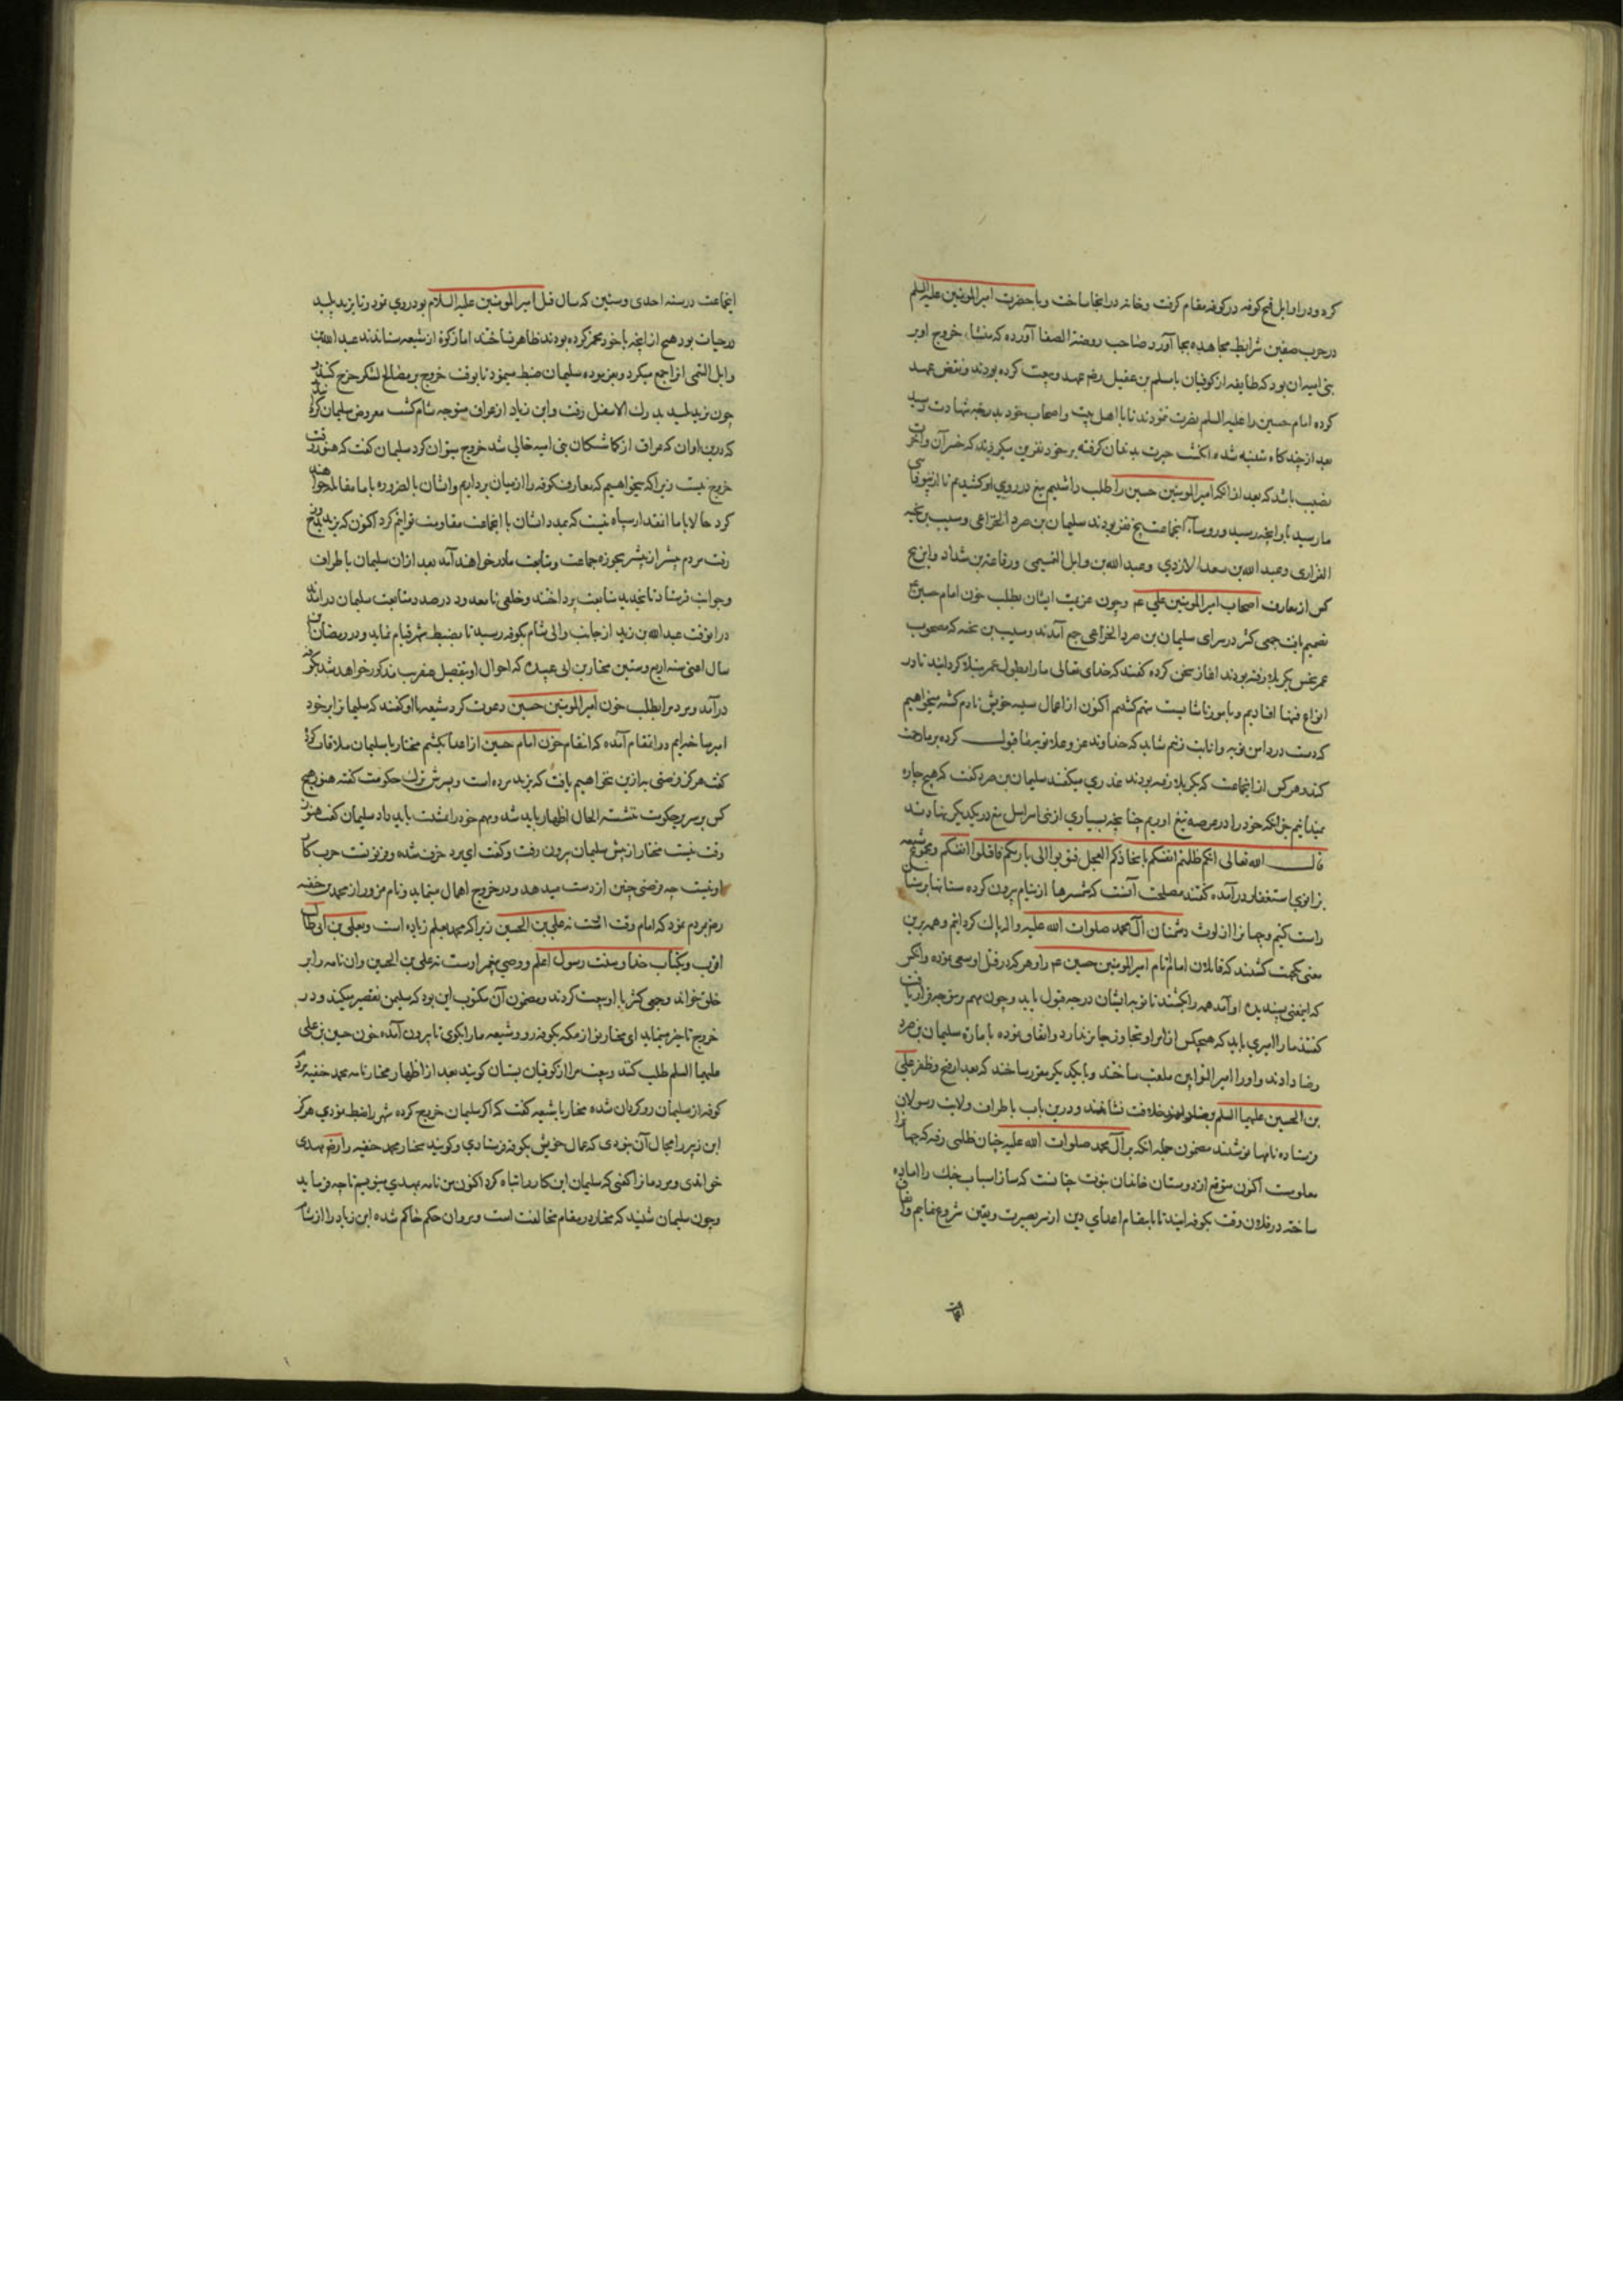 کرد و در اوایل فتح کوفه در کوفه مقام کرفت و خانه در انجا ساخت و با حضرت امیر المومنین علیه السلم
در حرب صفین شرایط مجاهده بجا آورد صاحب روضة الصفا آورده که منشاء خروج او بر
بنی امیه ان بود که طایفه از کوفیان با مسلم بن عقیل رضه عهد و بیعت کرده بودند و نقض عهد
کرده امام حسین را علیه السلم نصرت ننمودند تا با اهل بیت و اصحاب خود بدرجه شهادت رسید
بعد از چند کاه متنبه شده انکشت حیرت بدندان کرفته بر خود نفرین میکردند که خسر آن و آخرت
نصیب باشد که بعد از انکه امیر المومنین حسین را طلب داشتیم تیغ در روی او کشیدیم تا از
ما رسید باو انچه رسید و روساء انجماعت پنج نفر بودند سلیمان بن صرد الخزاعی و مسیب بن نجبه
الفزاری و عبد الله بن سعد الازدی و عبد الله بن وابل التمیمی و رفاعة بن شداد و این پنج
کس از معارف اصحاب امیر المومنین علی عم و چون عزیمت ایشان بطلب خون امام حسین
تصمیم یافت جمعی کثیر در سرای سلیمان بن صرد الخزاعی جمع آمدند و مسیب بن نجبه که مصحوب
بکربلا رفته بودند اغاز سخن کرده کفتند که خدای تعالی ما را بطول عمر مبتلا کردانید تا در
انواع فتنها افتادیم و بامور ناشایست متهم کشتیم اکنون از اعمال سیه خویش نادم کشته میخواهیم
که دست در دامن توبه و انابت زنیم شاید که خداوند عز و علا توبه ما قبول کرده بر ما رحمت
کند و هر کس از انجماعت که بکربلا رفته بودند عذری میکفتند سلیمان بن صرد کفت که هیچ چاره
نمیدانیم جز انکه خود را در عرصه تیغ اوریم چنانچه بسیاری از بنی اسرایل تیغ در یکدیکر نهادند
قال الله تعالی انکم ظلمتم انفسکم باتخاذکم العجل فتوبوا الی بارئکم فاقتلوا انفسکم و مجموع شیعه
بزانوی استغفار درآمده کفتند مصلحت آنست که شمشیرها از نیام برون کرده سنانها
راست کنیم و جهانرا از لوث دشمنان آل محمد صلوات الله علیه و اله پاک کردانیم و همه برین
معنی یکجهت کشتند که قاتلان امام امیر المومنین حسین عم را و هر که در قتل او سعی نموده و
که اینمعنی پسندیده او آمد همه را بکشند تا توبه ایشان درجه قبول یابد و چون مهم برینوجه قرار یافت
کفتند ما را امیری باید که هیچکس از امر او تجاوز جایز ندارد و اتفاق نموده با مارت سلیمان بن صرد
رضا دادند و او را امیر التوابین ملقب ساختند و با یکدیکر مقرر ساختند که بعد از فتح و ظفر علی
بن الحسین علیهما السلم بخلافت نشانند و درین باب باطراف ولایت رسولان
فرستاده نامها نوشتند مضمون جمله انکه بر آل محمد صلوات الله علیه چنان ظلمی رفته که جهانرا
معلومست اکنون متوقع از دوستان خاندان نبوت چنانست که ساز اسباب جنک را اماده
ساخته در فلان وقت بکوفه ایند تا بانتقام اعدای دین از سر بصیرت و یقین شروع نماییم و اتفاق
انجماعت
انجماعت در سنه احدی و ستین که سال قتل امیر المومنین علیه السلام بود روی نمود و تا یزید پلید
در حیات بود هیچ از انچه با خود مخمر کرده بودند ظاهر نساختند اما زکوة از شیعه میستاندند عبد الله بن
وابل التمی انرا جمع میکرد و بفرموده سلیمان ضبط مینمود تا بوقت خروج بر مصالح لشکر خرج کنند
چون یزید پلید بدرک الاسفل رفت و ابن زیاد از عراق متوجه شام کشت معروض سلیمان کردند
که درین اوان که عراق از کماشتکان بنی امیه خالی شد خروج میتوان کرد سلیمان کفت که هنوز وقت
خروج نیست زیرا که میخواهیم که معارف کوفه را از میان برداریم و ایشان بالضروره با ما مقاتله خواهند
کرد حالا با ما انقدار سپاه نیست که بمدد ایشان با انجماعت مقاومت توانیم کرد اکنون که یزید بدوزخ
رفت مردم بیشتر از پیشتر بحوزه جماعت و متابعت ما درخواهند آمد بعد ازان سلیمان باطراف
و جوانب فرستاد تا بتجدید متابعت پرداختند و خلقی نامعدود در صدد متابعت سلیمان درآمدند
درانوقت عبد الله بن زید از جانب والی شام بکوفه رسید تا بضبط شهر قیام نماید و در رمضان
سال اعنی سنه اربع و ستین مختار بن ابی عبیده که احوال او بتفصیل عنقریب مذکور خواهد شد بکوفه
درآمد و مردم را بطلب خون امیر المومنین حسین دعوت کرد شیعه با او کفتند که سلیمانرا بر خود
امیر ساخته ایم و در انتقام آمده که انتقام خون امام حسین از اعدا بکشیم مختار با سلیمان ملاقات کرد
کفت هرکز فرصتی به ازین نخواهیم یافت که یزید مرده است و پسرش ترک حکومت کفته هنوز هیچ
کس بر سریر حکومت ننشسته الحال اظهار باید شد و مهم خود را تمشیت باید داد سلیمان کفت هنوز
وقت نیست مختار از پیش سلیمان برون رفت و کفت ای مرد خرف شده و فرتوت حرب کار
او نیست چه فرصتی چنین از دست میدهد و در خروج اهمال مینماید و نام مزور از محمد بن حنفیه
رضه بمردم نمود که امام وقت اوست نه علی بن الحسین زیرا که محمد بعلم زیاده است و بعلی بن ابی طالب
اقرب و بکتاب خدا و سنت رسول اعلم و وصی پیغمبر اوست نه علی بن الحسین و ان نامه را بر
خلق خواند و جمعی کثیر با او بیعت کردند و مضمون آن مکتوب این بود که سلیمن تقصیر میکند و در
خروج تاخیر مینماید ای مختار تو از مکه بکوفه رو و شیعه ما را بکوی تا برون آمده خون حسین بن علی
علیهما السلم طلب کنند و بیعت مرا از کوفیان بستان کویند بعد از اظهار مختار نامه محمد حنفیه
کوفه از سلیمان رو کردان شده مختار با شیعه کفت که اکر سلیمان خروج کرده شهر را ضبط نمودی هرکز
ابن زبیر را مجال آن نبودی که عمال خویش بکوفه فرستادی و کویند مختار محمد حنفیه را رضه مهدی
خواندی و مردمانرا کفتی که سلیمان این کار را تباه کرد اکنون من نامه بمهدی مینویسم تا چه فرماید
و چون سلیمان شنید که مختار در مقام مخالفت است و مروان حکم حاکم شده ابن زیاد را از شام